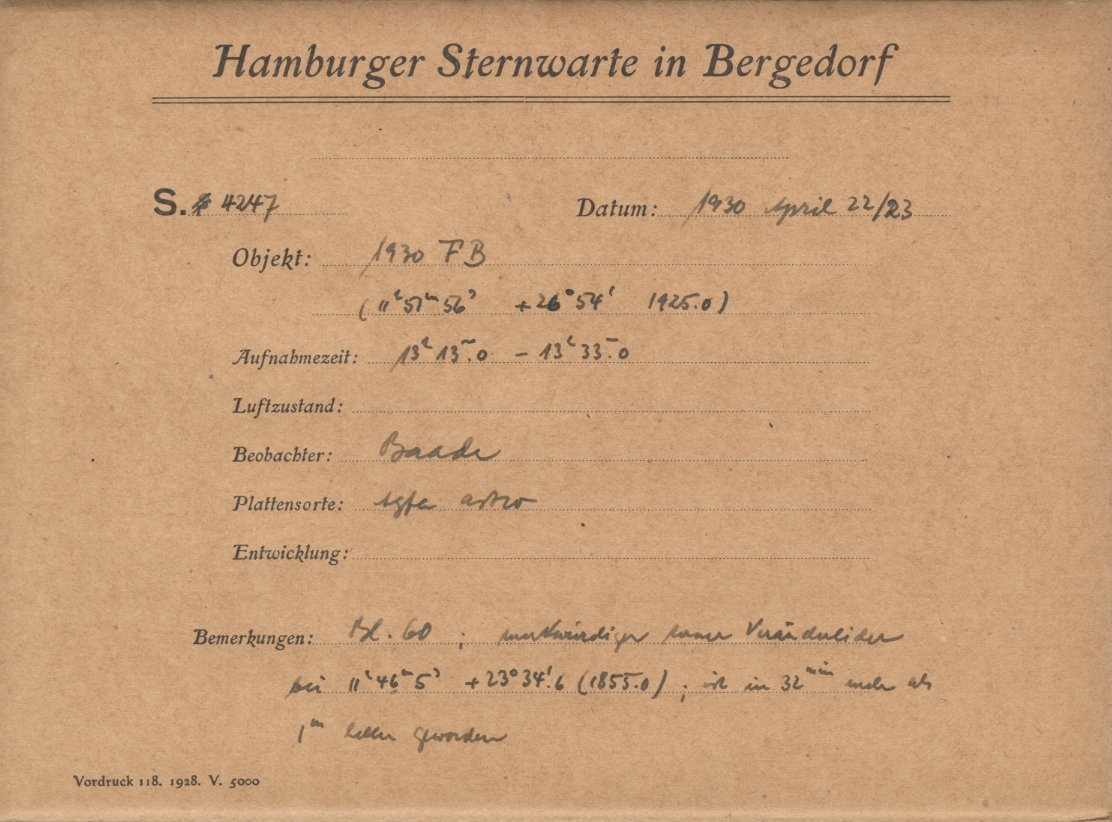 Hamburger Sternwarte in Bergedorf
S. 4247 Datum: 1930 April 22/23
Objekt: 1930 FB
(11ʰ 51ᵐ 56ˢ +26° 54' 1925.0)
Aufnahmezeit: 13ʰ 13ᵐ.0 – 13ʰ 33ᵐ.0
Luftzustand:
Beobachter: Baade
Plattensorte: Agfa astro
Entwicklung:
Bemerkungen: Bl. 60 ; merkwürdiger Veränderlicher
bei 11ʰ 46ᵐ 5ˢ +23° 34'.6 (1855.0) ; ist in 32ᵐⁱⁿ mehr als
1ᵐ heller geworden
Vordruck 118. 1928. V. 5000